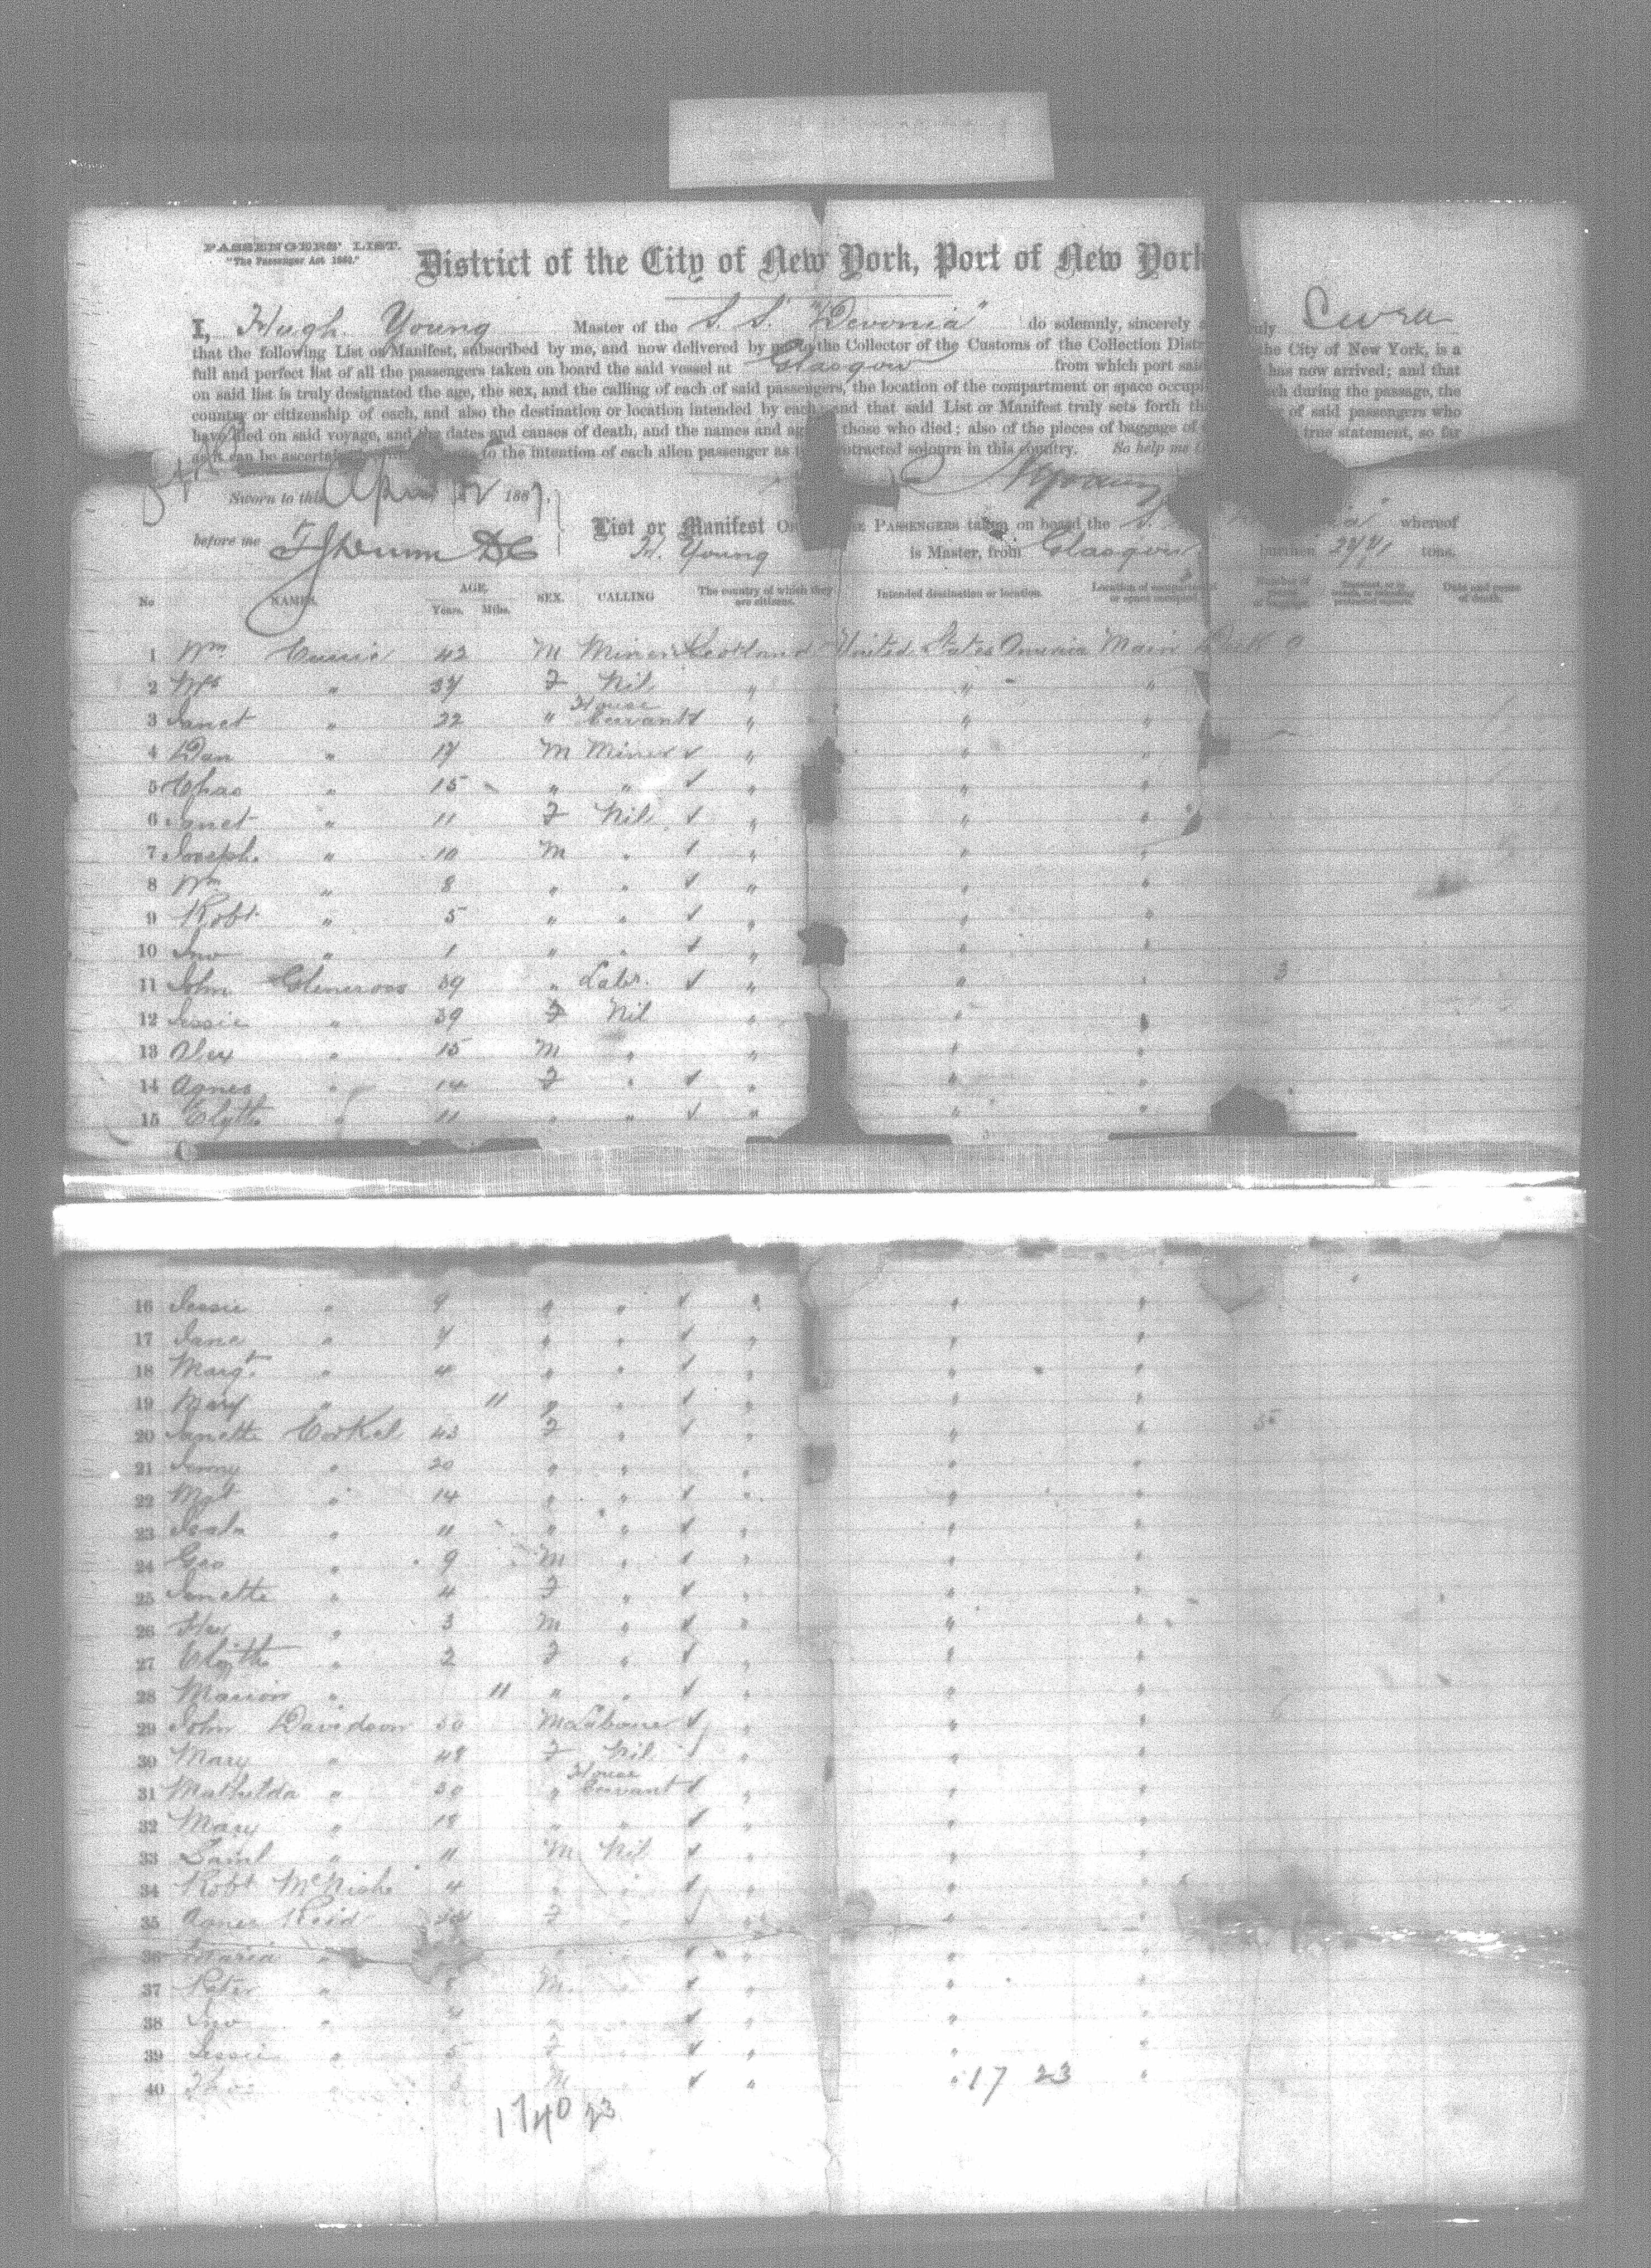 PASSENGERS' LIST.
"The Passenger Act 1882."
District of the City of New York, Port of New York
I, Hugh Young Master of the S. S. "Devonia" do solemnly, sincerely uly Swear
that the following List or Manifest, subscribed by me, and now delivered by me to the Collector of the Customs of the Collection Distr the City of New York, is a
full and perfect list of all the passengers taken on board the said vessel at Glasgow from which port said has now arrived; and that
on said list is truly designated the age, the sex, and the calling of each of said passengers, the location of the compartment or space occupi ch during the passage, the
country or citizenship of each, and also the destination or location intended by each and that said List or Manifest truly sets forth th of said passengers who
have died on said voyage, and the dates and causes of death, and the names and ag those who died; also of the pieces of baggage of true statement, so far
as it can be ascertai to the intention of each alien passenger as t otracted sojourn in this country. So help me
Sworn to this April 12 1887, HYoung
before me
List or Manifest OF E PASSENGERS taken on board the S. whereof
H. Young is Master, from Glasgow burthen tons.
No NAMES. AGE. Years. Mths. SEX. CALLING The country of which they are citizens. Intended destination or location. Location of compartment or space occupied. Number of pieces of baggage. Date and cause of death.
1 Wm Currie 42 M Miner Scotland United States America Main Deck
2 Mrs " 37 F Nil " " "
3 Janet " 22 " House Servant " " "
4 Dan " 17 M Miner " " "
5 Chas " 15 " " " " "
6 Janet " 11 F Nil " " "
7 Joseph " 10 M " " " "
8 Wm " 8 " " " " "
9 Robt " 5 " " " " "
10 Jno " 1 " " " " "
11 John Glencross 39 " Labr. " " " 3
12 Jessie " 39 F Nil " " "
13 Alex " 15 M " " " "
14 Agnes " 14 F " " " "
15 Clyth " 11 " " " " "
16 Jessie " 9 " " " " "
17 Jane " 7 " " " " "
18 Margt. " 4 " " " " "
19 Mary " 11 " " " " "
20 Janette 43 F " " " "
21 Jenny " 20 " " " " "
22 Mgt " 14 " " " " "
23 Isala " 11 " " " " "
24 Geo " 9 M " " " "
25 Janette " 4 F " " " "
26 " 3 M " " " "
27 Clyth " 2 F " " " "
28 Marion " 11 " " " " "
29 John Davidson 50 M Labourer " " "
30 Mary " 48 F Nil " " "
31 Mathilda " 30 " House Servant " " "
32 Mary " 18 " " " " "
33 Saml " 11 M Nil " " "
34 Robt McNish 4 " " " " "
35 Agnes Reid F " " " "
36 Maria " " " " " "
37 Peter " 8 M " " " "
38 Jno " 7 " " " " "
39 Jessie " 5 F " " " "
40 Thos " M " " "
17 23
17 40 23